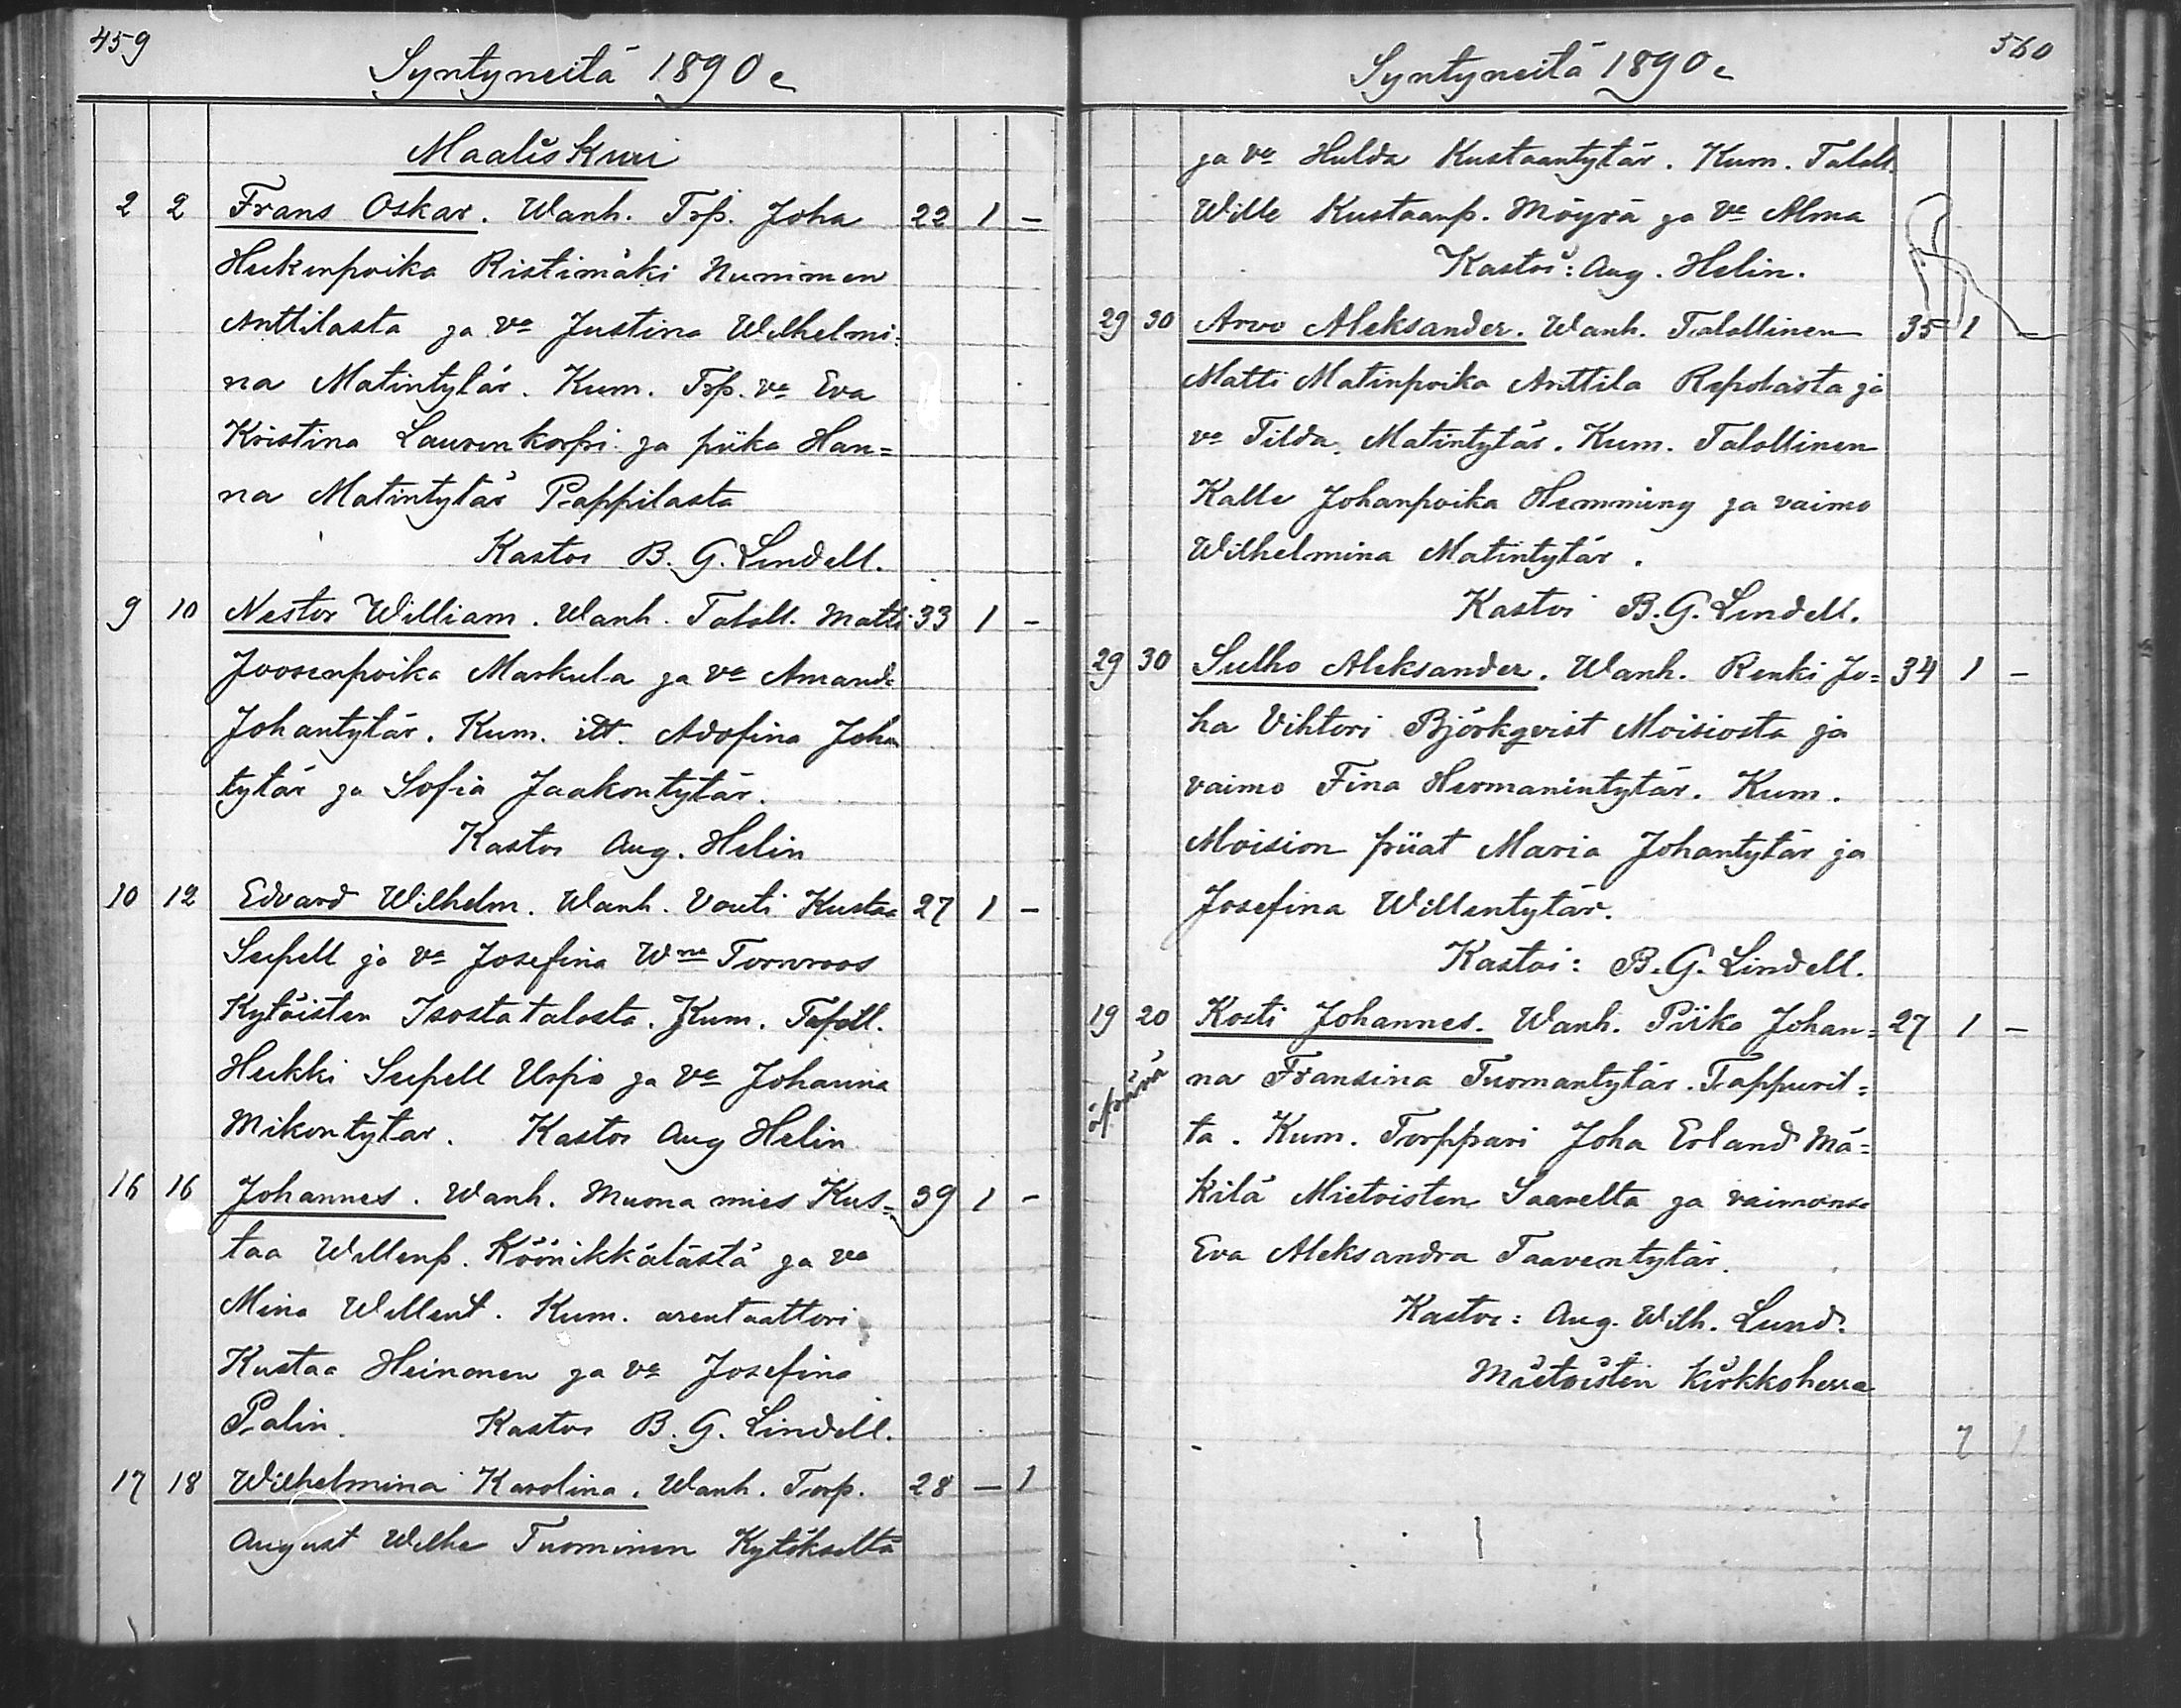 459
Syntyneitä 1890
Maaliskuu
2 2 Frans Oskar. Wanh. Trp. Joha 22 1 –
Heikinpoika Ristimäki Nummen
Anttilasta ja va Justina Wilhelmi:
na Matintytär. Kum. Trp. va Eva
Kristina Laurenkorpi ja piika Han=
na Matintytär Pappilasta
Kastoi B. G. Lindell.
9 10 Nestor William. Wanh. Taloll. Matti 33 1 –
Joosenpoika Markula ja va Amanda
Johantytär. Kum. itt. Adofina Joha
tytär ja Sofia Jaakontytär.
Kastoi Aug. Helin
10 12 Edvard Wilhelm. Wanh. Vouti Kustaa 27 1 –
Seipell ja va Josefina Wna Tornroos
Kytöisten Isosta talosta. Kum. Taloll.
Heikki Seipell Uspio ja va Johanna
Mikontytar. Kastoi Aug Helin
16 16 Johannes. Wanh. Muona mies Kus= 39 1 –
taa Willenp. Köönikkälästä ja va
Mina Willent. Kum. arentaattori
Kustaa Heinonen ja va Josefina
Palin. Kastoi B. G. Lindell.
17 18 Wilhelmina Karolina. Wanh. Torp. 28 – 1
August Wilhe Tuominen Kytökseltä
560
Syntyneitä 1890
ja va Hulda Kustaantytär. Kum. Taloll.
Wille Kustaanp. Möyrä ja va Alma
Kastoi: Aug. Helin.
29 30 Arvo Aleksander. Wanh. Talollinen 35 1 –
Matti Matinpoika Anttila Repolasta ja
va Tilda Matintytär. Kum. Talollinen
Kalle Johanpoika Hemming ja vaimo
Wilhelmina Matintytär.
Kastoi B. G. Lindell.
29 30 Sulho Aleksander. Wanh. Renki Jo= 34 1 –
ha Vihtori Björkqvist Moisiosta ja
vaimo Fina Hermanintytär. Kum.
Moision piiat Maria Johantytär ja
Josefina Willentytär.
Kastoi: B. G. Lindell.
19 20 Kosti Johannes. Wanh. Piika Johan= 27 1 –
na Fransina Tuomantytär. Tappuril=
ta. Kum. Torppari Joha Erland Mä=
kilä Mietoisten Saarelta ja vaimonsa
Eva Aleksandra Taaventytär.
Kastoi: Aug. Wilh. Lund.
Mietoisten kirkkoherra
7 1